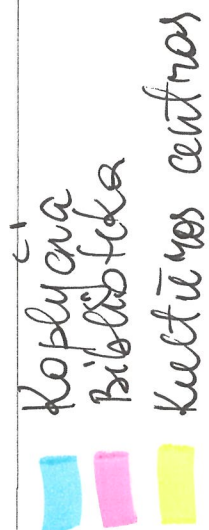 Koplyčia
Biblioteka
Kultūros centras